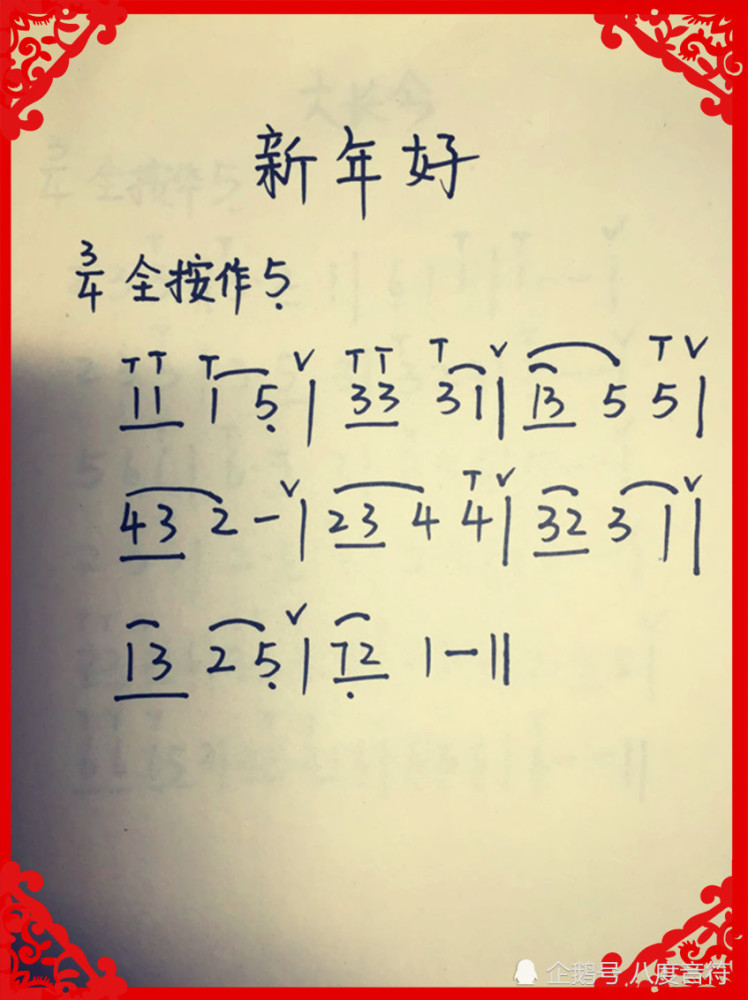 新年好
3/4 全按作5̣
TT T V TT T V TV
11 1 5̣ | 33 31 | 13 5 5 |
V T V V
43 2 - | 23 4 4 | 32 3 1 |
V
13 2 5̣ | 7̣2 1 - ||
企鹅号 八度音符